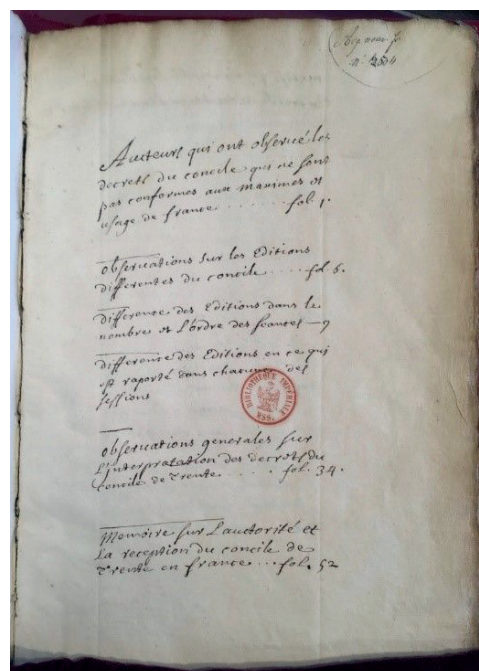 n.° 2504
Aucteurs qui ont observé les
decrets du concile qui ne sont
pas conformes aux maximes et
usage de france ........ fol. 1.
observations sur les Editions
differentes du concile .... fol. 6.
difference des Editions dans le
nombre et l'ordre des seances — 9
difference des Editions en ce qui
est raporté dans chacune des
sessions
BIBLIOTHÈQUE IMPÉRIALE
MSS.
observations generales sur
L'interpretation des decrets du
concile de Trente ..... fol. 34.
Memoire sur L'auctorité et
La reception du concile de
Trente en france ... fol. 52